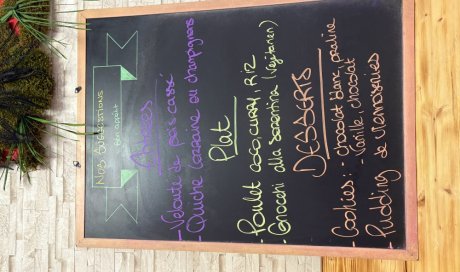 NOS SUGGESTIONS
Bon appétit
ENTRÉES
- Velouté de pois cassé
- Quiche Lorraine ou champignons
Plat
- Poulet COCO, CURRY, RIZ
- Gnocchi alla sorrentina (Végétarien)
DESSERTS
- Cookies : - chocolat blanc, praline
- Vanille, chocolat
- Pudding de viennoiseries